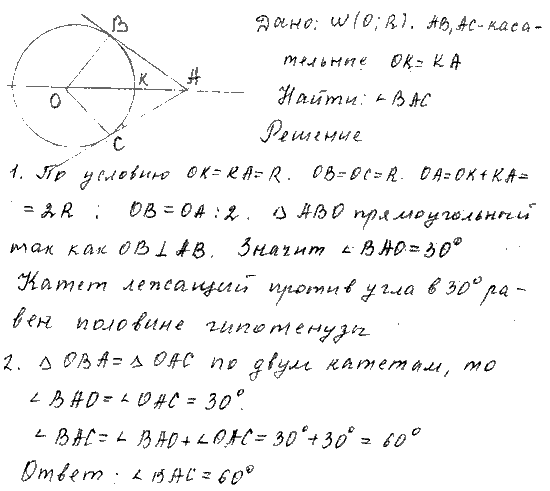 B
K
A
O
C
Дано: W(O; R). AB, AC-каса-
тельные OK = KA
Найти: ∠BAC
Решение
1. По условию OK = KA = R. OB = OC = R. OA = OK + KA =
= 2R ; OB = OA : 2. △ ABO прямоугольный
так как OB ⊥ AB. Значит ∠BAO = 30°
Катет лежащий против угла в 30° ра-
вен половине гипотенузы
2. △ OBA = △ OAC по двум катетам, то
∠BAO = ∠OAC = 30°.
∠BAC = ∠BAO + ∠OAC = 30° + 30° = 60°
Ответ: ∠BAC = 60°